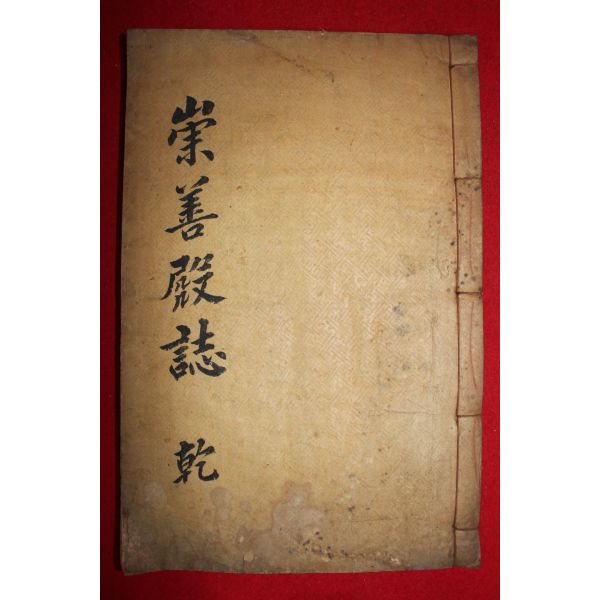 崇善殿誌 乾